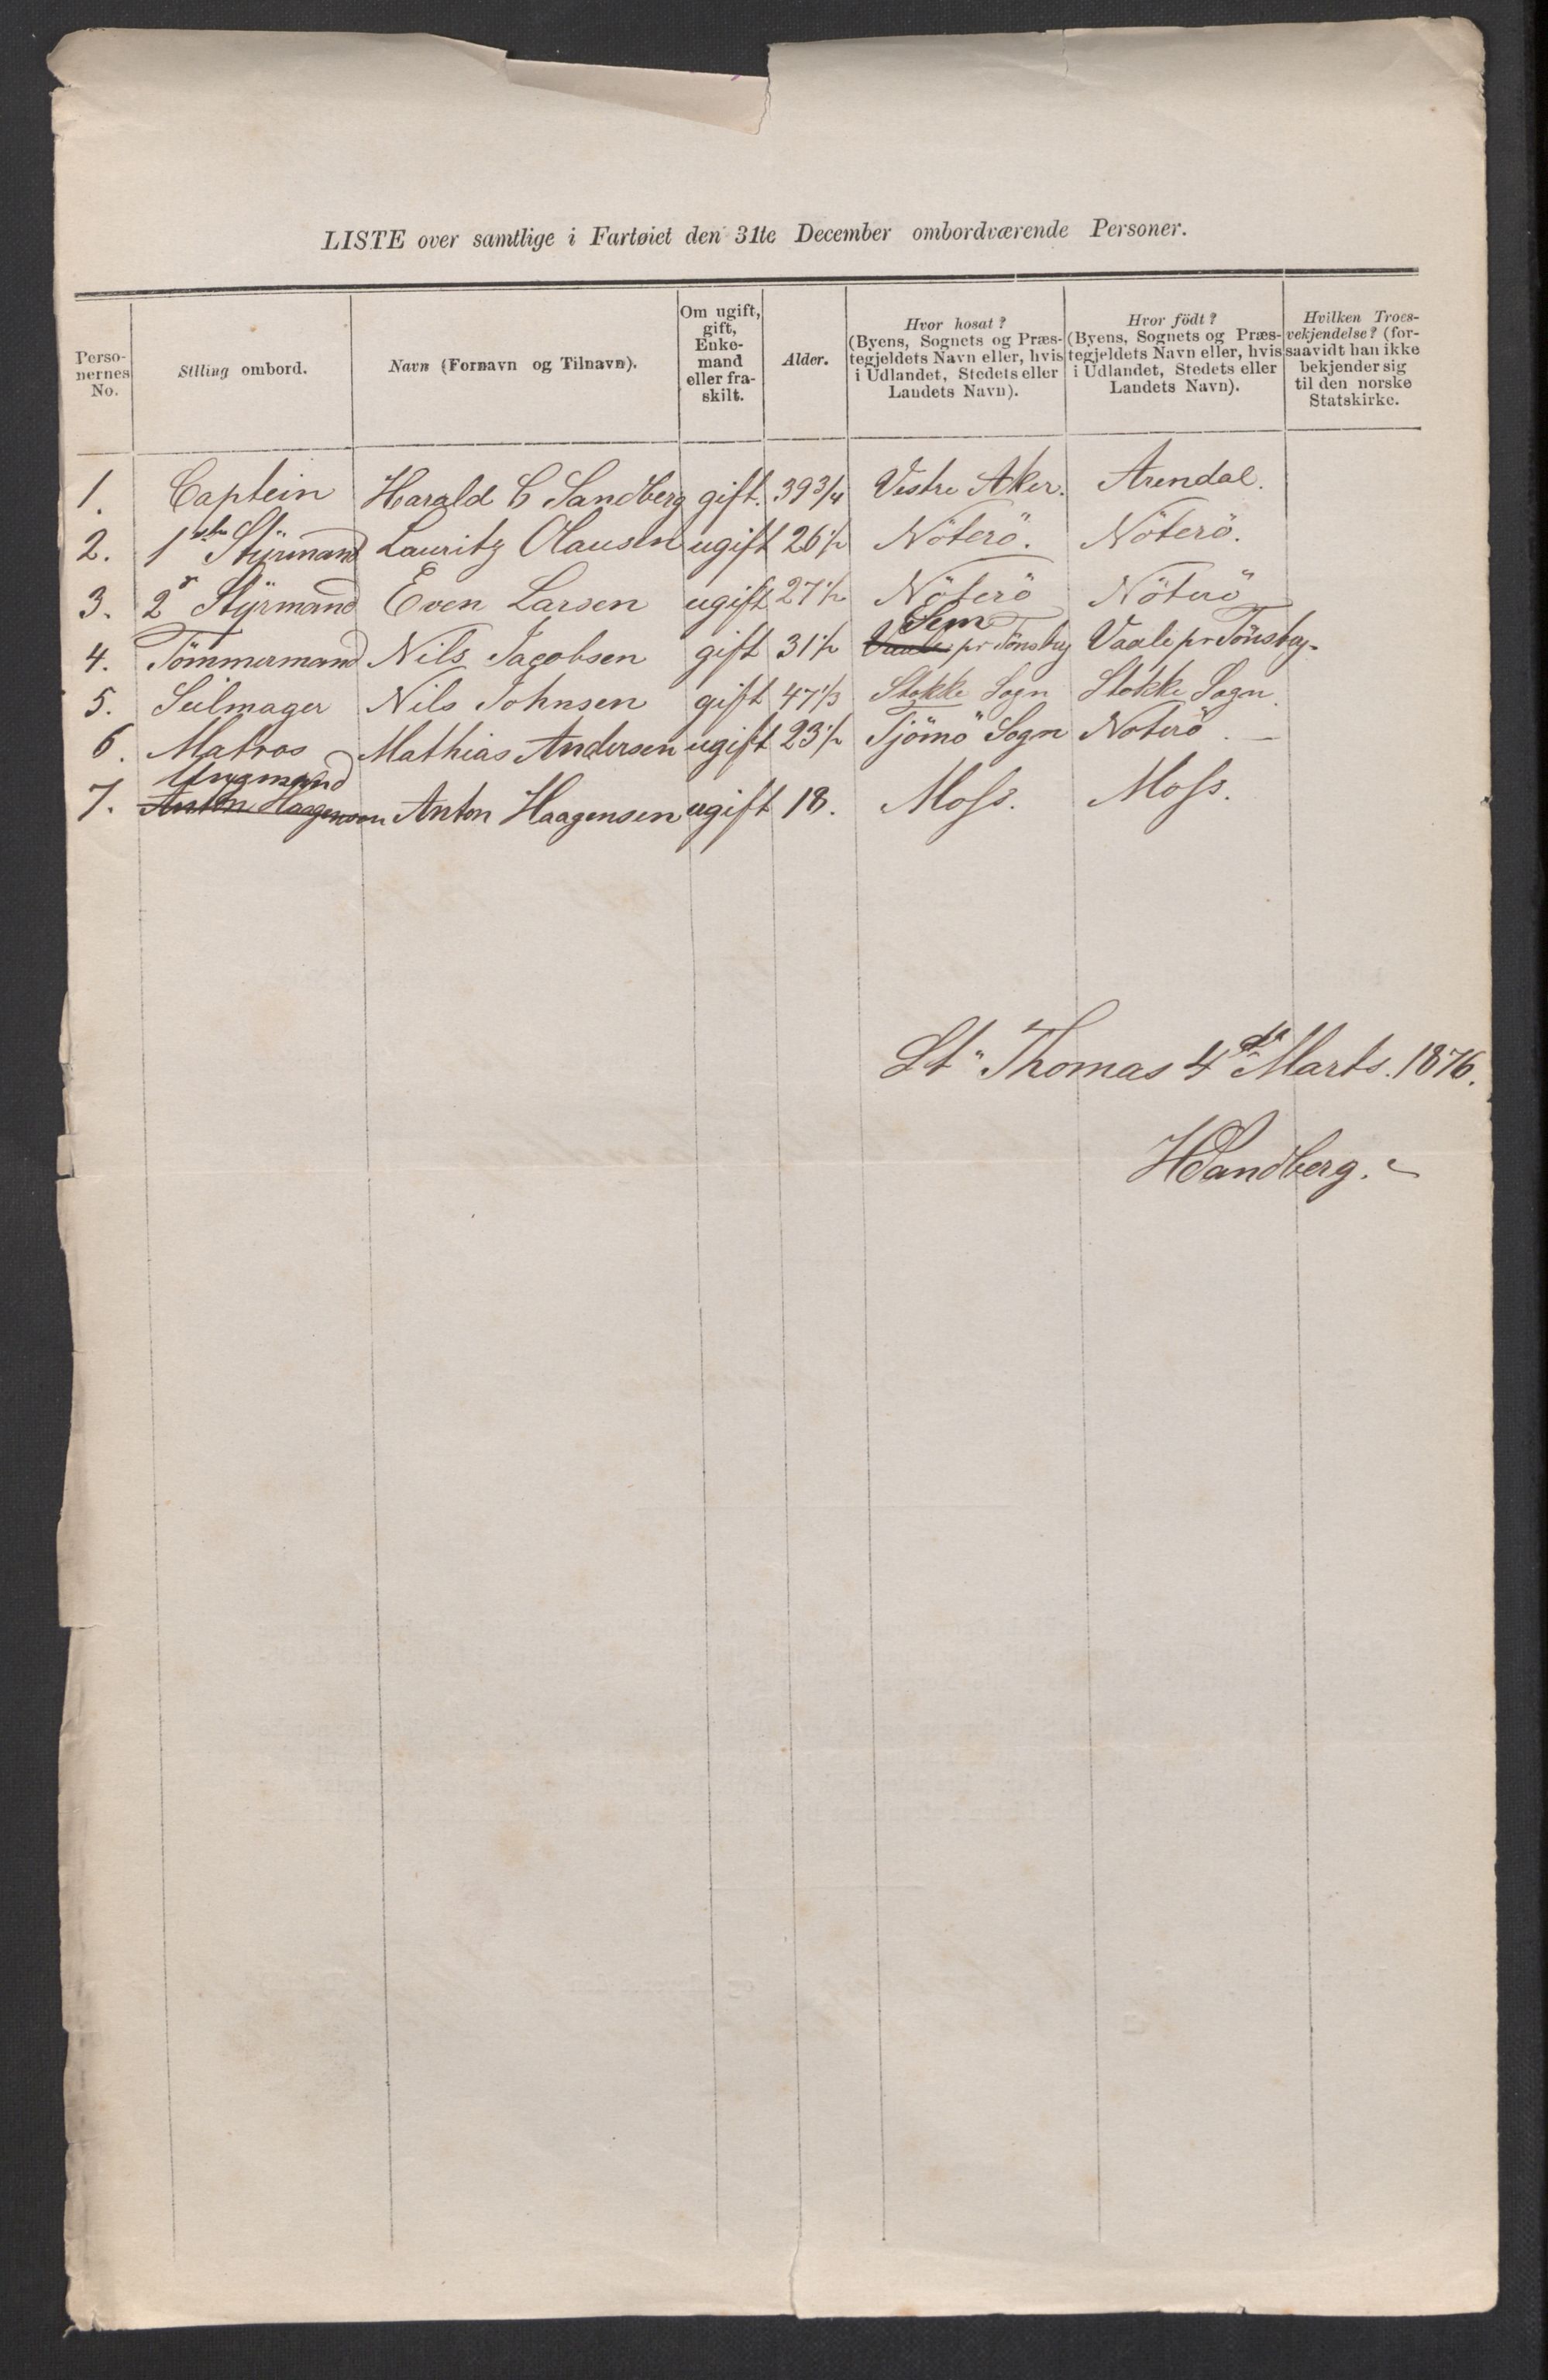 LISTE over samtlige i Fartøiet den 31te December ombordværende Personer.
Personernes No. | Stlling ombord. | Navn (Fornavn og Tilnavn). | Om ugift, gift, Enkemand eller fraskilt. | Alder. | Hvor bosat? (Byens, Sognets og Præstegjeldets Navn eller, hvis i Udlandet, Stedets eller Landets Navn). | Hvor födt? (Byens, Sognets og Præstegjeldets Navn eller, hvis i Udlandet, Stedets eller Landets Navn). | Hvilken Troesvekjendelse? (forsaavidt han ikke bekjender sig til den norske Statskirke.
1. Captein Harald C Sandberg gift. 39 3/4 Vestre Aker. Arendal.
2. 1ste Styrmand Lauritz Olausen ugift 26 1/2 Nöterö. Nöterö.
3. 2r Styrmand Even Larsen ugift 27 1/2 Nöterö Nöterö
Sem
4. Tömmermand Nils Jacobsen gift 31 1/2 Vaale pr Tönsby Vaale pr Tönsby.
5. Seilmager Nils Johnsen gift 47 1/3 Stokke Sogn Stokke Sogn.
6. Matros Mathias Andersen ugift 23 1/2 Tjömö Sogn Noterö. —
Ungmand
7. Anton Haagensen Anton Haagensen ugift 18. Moss. Moss.
St" Thomas 4de Marts. 1876.
HSandberg.